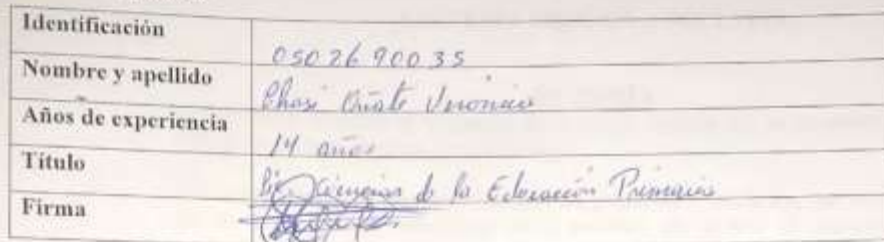 Identificación 0502690035
Nombre y apellido Chasi Oñate Veronica
Años de experiencia 14 años
Título Lic. Ciencias de la Educación Primaria
Firma